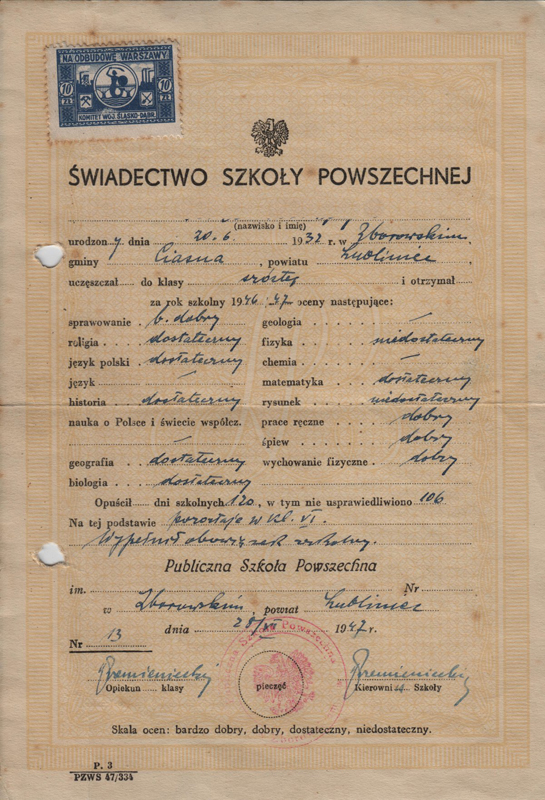 NA ODBUDOWĘ WARSZAWY
10 ZŁ 10 ZŁ
KOMITET WOJ. ŚLĄSKO-DĄBR.
ŚWIADECTWO SZKOŁY POWSZECHNEJ
(nazwisko i imię)
urodzony dnia 20.6. 1932 r. w Zborowskim
gminy Ciasna, powiatu Lubliniec
uczęszczał do klasy szóstej i otrzymał
za rok szkolny 1946/47 oceny następujące:
sprawowanie b. dobry
religia dostateczny
język polski dostateczny
język —
historia dostateczny
nauka o Polsce i świecie współcz.
—
geografia dostateczny
biologia dostateczny
geologia —
fizyka niedostateczny
chemia —
matematyka dostateczny
rysunek niedostateczny
prace ręczne dobry
śpiew dobry
wychowanie fizyczne dobry
Opuścił dni szkolnych 120, w tym nie usprawiedliwiono 106
Na tej podstawie pozostaje w kl. VI.
Wypełnił obowiązek szkolny.
Publiczna Szkoła Powszechna
im. Nr
w Zborowskim, powiat Lubliniec
dnia 28/VI 1947 r.
Nr 13
Opiekun klasy
pieczęć
Kierownik Szkoły
Skala ocen: bardzo dobry, dobry, dostateczny, niedostateczny.
P. 3
PZWS 47/334